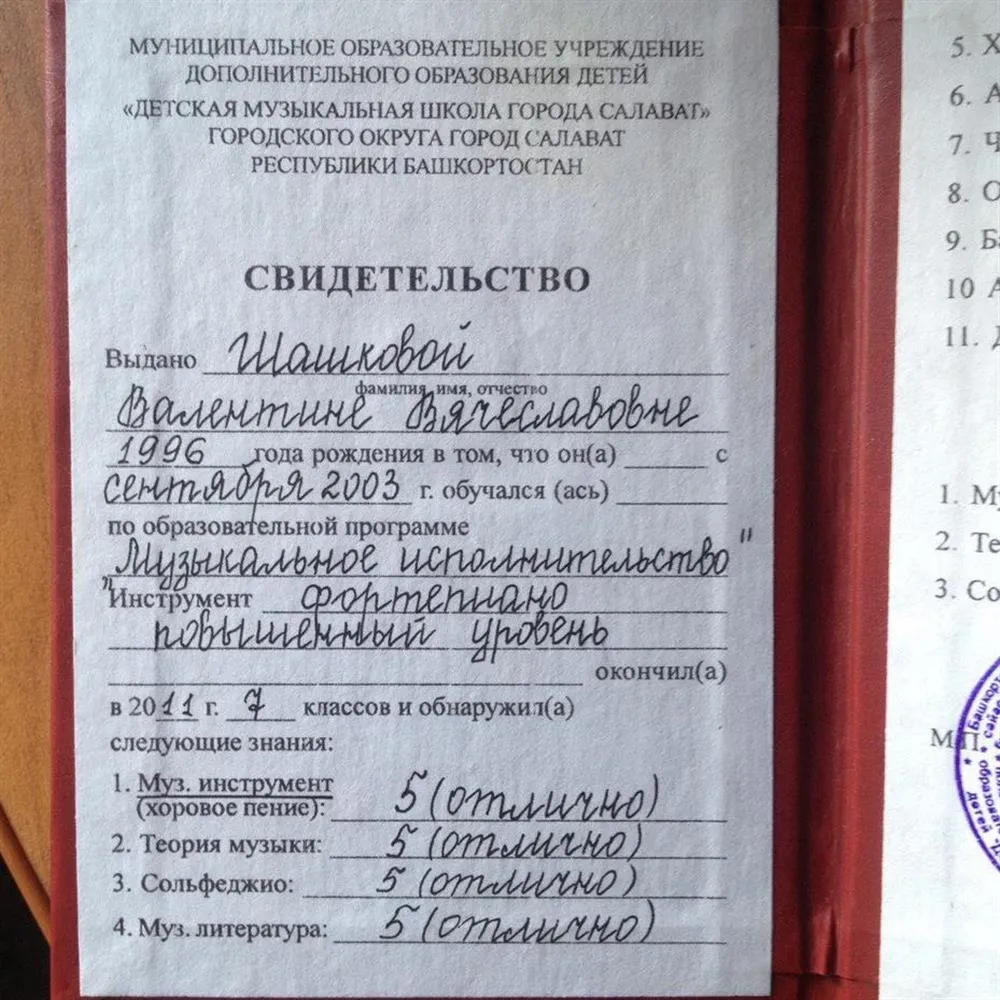 МУНИЦИПАЛЬНОЕ ОБРАЗОВАТЕЛЬНОЕ УЧРЕЖДЕНИЕ
ДОПОЛНИТЕЛЬНОГО ОБРАЗОВАНИЯ ДЕТЕЙ
«ДЕТСКАЯ МУЗЫКАЛЬНАЯ ШКОЛА ГОРОДА САЛАВАТ»
ГОРОДСКОГО ОКРУГА ГОРОД САЛАВАТ
РЕСПУБЛИКИ БАШКОРТОСТАН
СВИДЕТЕЛЬСТВО
Выдано Шашковой
фамилия, имя, отчество
Валентине Вячеславовне
1996 года рождения в том, что он(а) с
сентября 2003 г. обучался (ась)
по образовательной программе
"Музыкальное исполнительство"
Инструмент фортепиано
повышенный уровень
окончил(а)
в 2011 г. 7 классов и обнаружил(а)
следующие знания:
1. Муз. инструмент
(хоровое пение): 5 (отлично)
2. Теория музыки: 5 (отлично)
3. Сольфеджио: 5 (отлично)
4. Муз. литература: 5 (отлично)
5. Х
6. А
7. Ч
8. О
9. Ба
10 А
11. Д
1. Му
2. Те
3. Со
М.П.